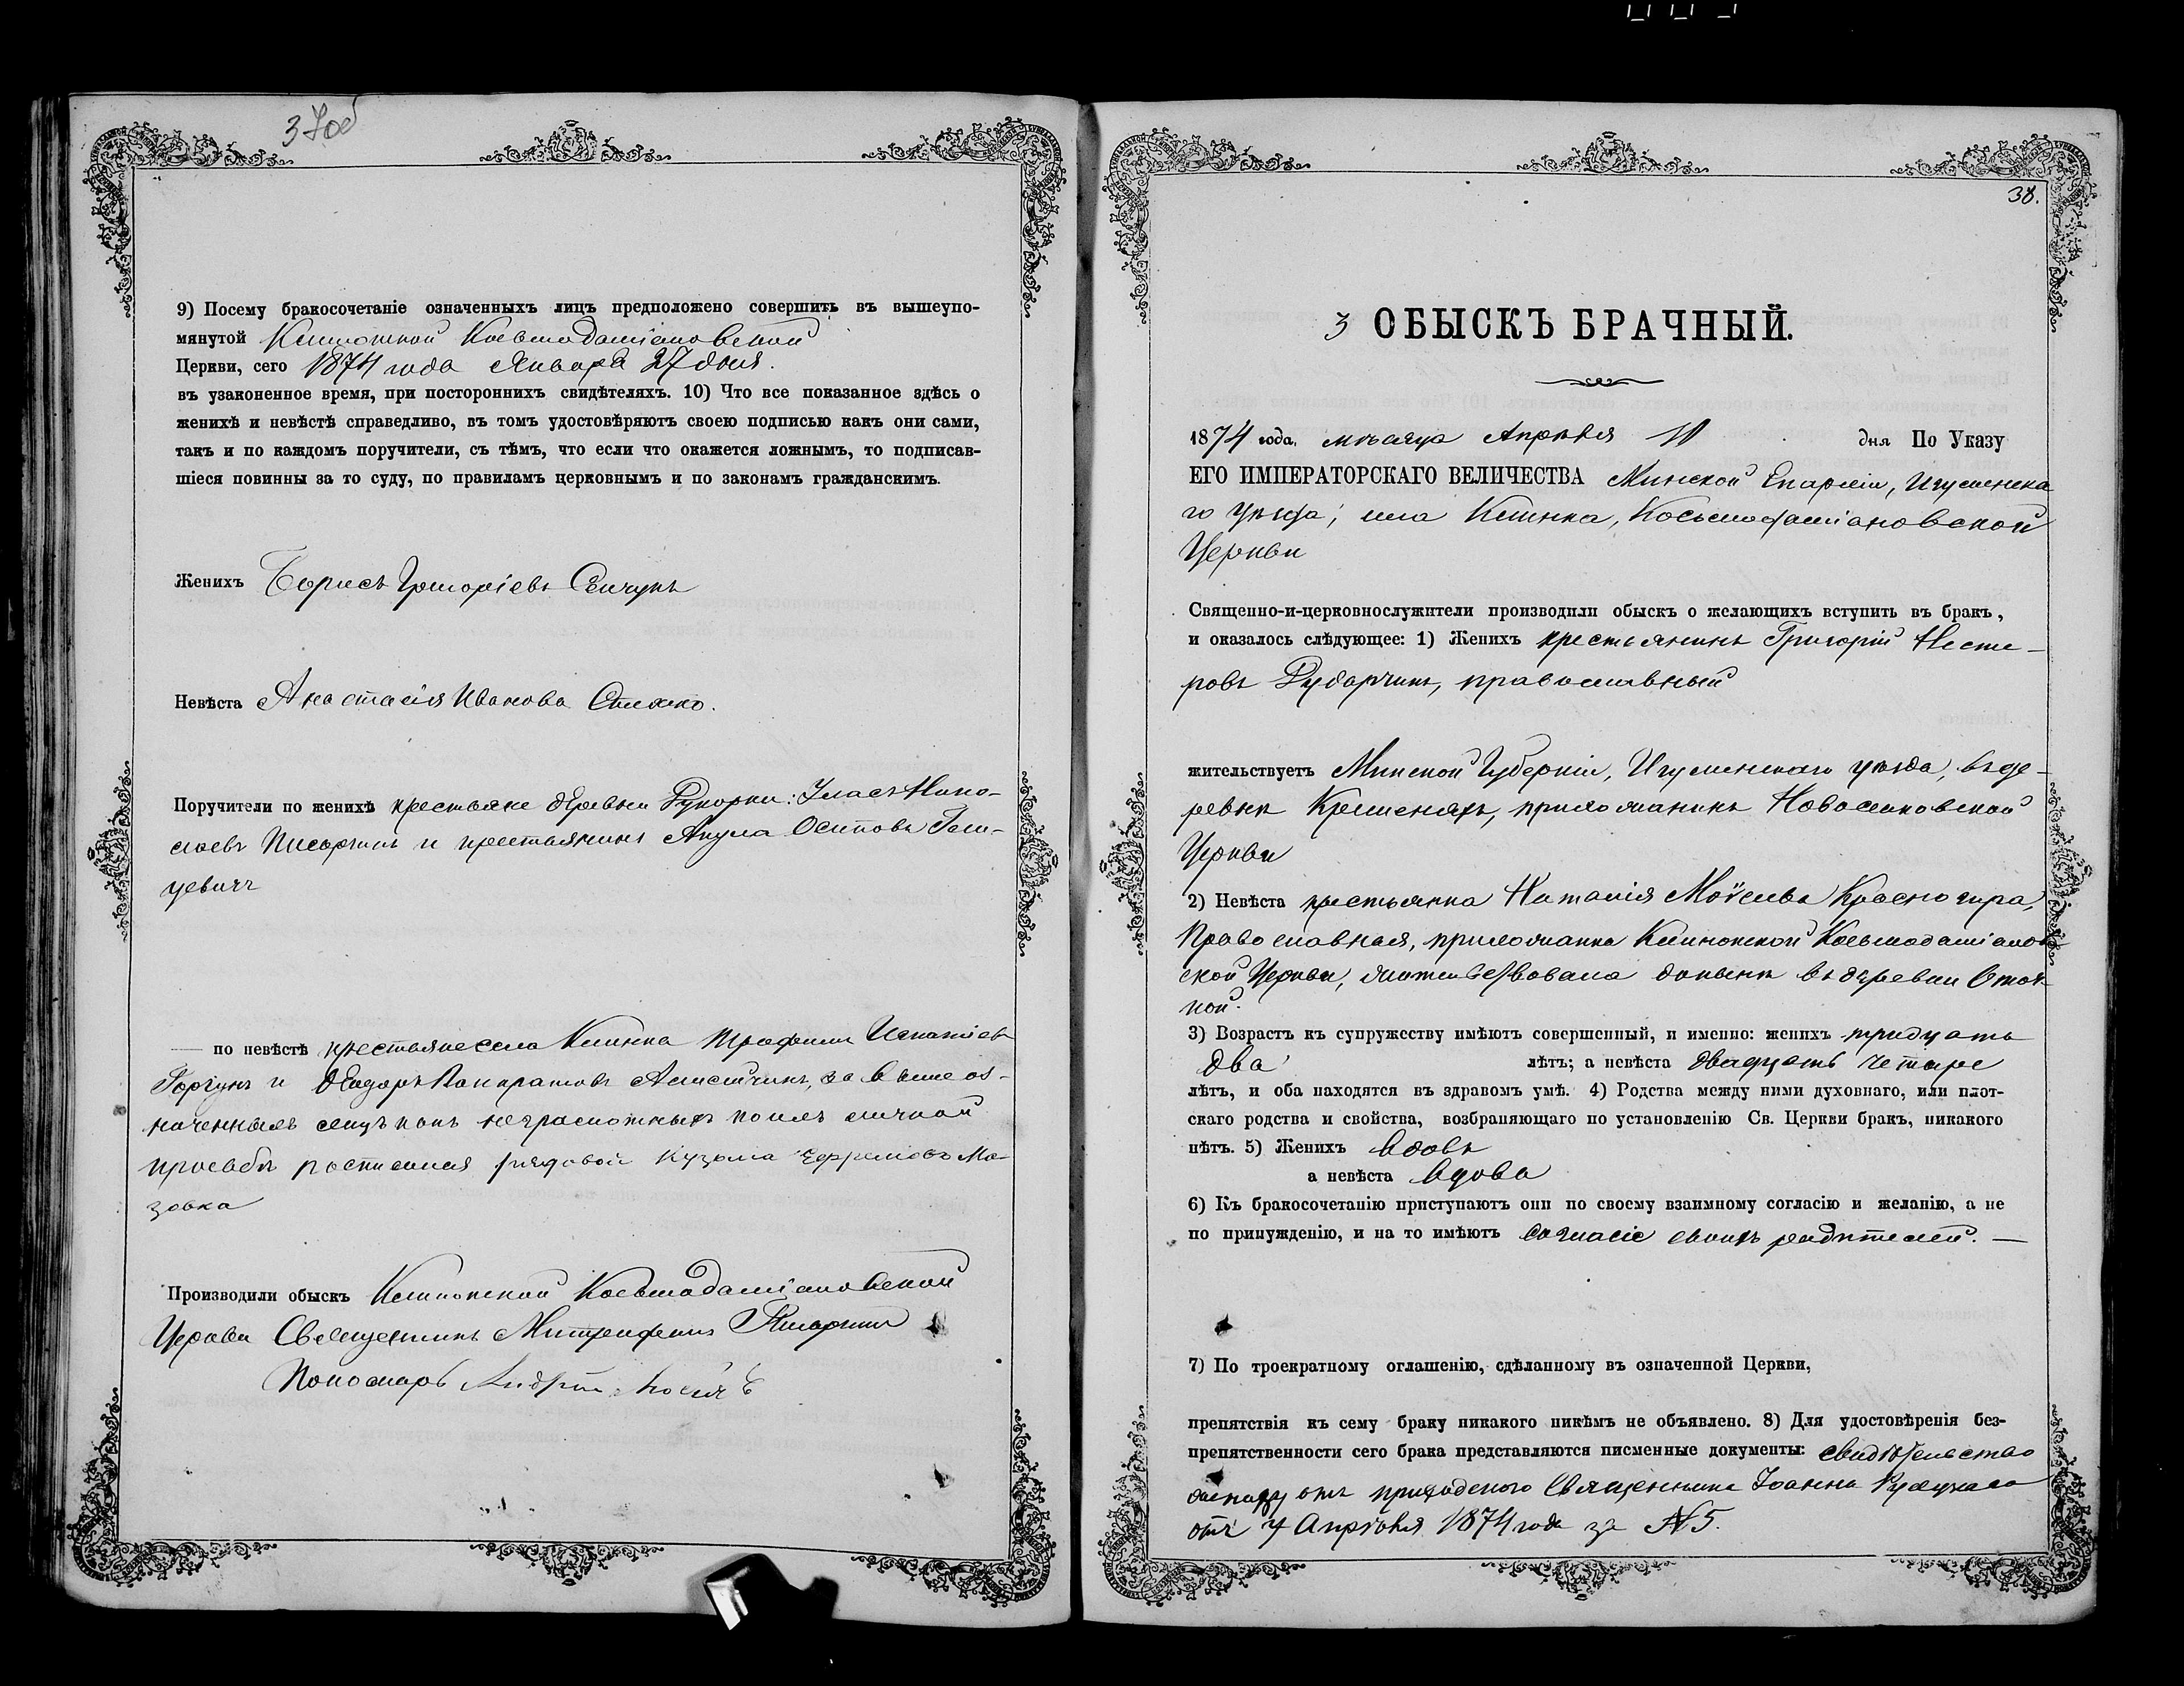 37об
9) Посему бракосочетаніе означенныхъ лицъ предположено совершить въ вышеупо-
мянутой Косьмодаміановской
Церкви, сего 1874 года Января 27 дня.
въ узаконенное время, при постороннихъ свидѣтеляхъ. 10) Что все показанное здѣсь о
женихѣ и невѣстѣ справедливо, въ томъ удостовѣряютъ своею подписью какъ они сами,
такъ и по каждомъ поручители, съ тѣмъ, что если что окажется ложнымъ, то подписав-
шіеся повинны за то суду, по правиламъ церковнымъ и по законамъ гражданскимъ.
Женихъ Борисъ Григоріевъ Сенчукъ
Невѣста Анастасія Иванова
Поручители по женихѣ крестьяне деревни
и крестьянинъ Акула Осиповъ Ган-
цевичъ
— по невѣстѣ крестьяне села Клинка Трофимъ Игнатіевъ
Горгунъ и Ѳедоръ Панкратовъ за выше оз-
наченныхъ неграмотныхъ по ихъ личной
просьбѣ росписался рядовой Кузьма Ефремовъ Ма-
зовка
Производили обыскъ Клинокской Косьмодаміановской
Церкви Священникъ Митрофанъ
Пономарь Андрей
38.
3 ОБЫСКЪ БРАЧНЫЙ.
1874 года, мѣсяца Апрѣля дня По Указу
ЕГО ИМПЕРАТОРСКАГО ВЕЛИЧЕСТВА Минской Епархіи, Игуменска
го Уѣзда, села Клинка, Косьмодаміановской
Церкви
Священно-и-церковнослужители производили обыскъ о желающихъ вступить въ бракъ,
и оказалось слѣдующее: 1) Женихъ крестьянинъ Григорій Несте-
ровъ Рударчикъ, православный
жительствуетъ Минской Губерніи, Игуменскаго уѣзда, въ де-
ревнѣ прихожанинъ Новоселковской
Церкви
2) Невѣста крестьянка Наталія Моѵсеева Красногира,
Православная, прихожанка Клинокской Косьмодаміанов
ской Церкви, жительствовала донынѣ въ деревни Оточ-
ной.
3) Возрастъ къ супружеству имѣютъ совершенный, и именно: женихъ тридцать
два лѣтъ; а невѣста двадцать четыре
лѣтъ, и оба находятся въ здравомъ умѣ. 4) Родства между ними духовнаго, или плот-
скаго родства и свойства, возбраняющаго по установленію Св. Церкви бракъ, никакого
нѣтъ. 5) Женихъ вдовъ
а невѣста вдова
6) Къ бракосочетанію приступаютъ они по своему взаимному согласію и желанію, а не
по принужденію, и на то имѣютъ согласіе своихъ родителей. —
7) По троекратному оглашенію, сдѣланному въ означенной Церкви,
препятствія къ сему браку никакого никѣмъ не объявлено. 8) Для удостовѣренія без-
препятственности сего брака представляются писменные документы: свидѣтельство
отъ приходскаго Священника Іоанна
отъ 7 Апрѣля 1874 года за № 5.